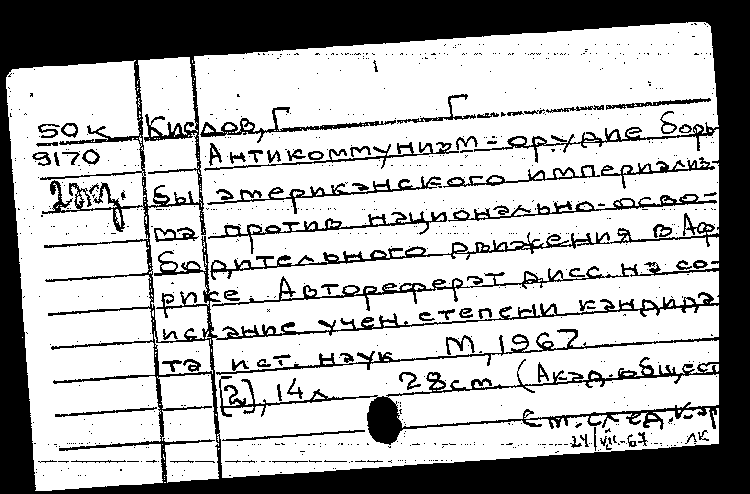 50к Кислов, Г Г
9170 Антикоммунизм - орудие борь
2 экз. бы американского империализ-
ма против национально-осво-
бодительного движения в Аф-
рике. Автореферат дисс. на со-
искание учен. степени кандида-
та ист. наук М., 1967.
[2], 14 л. 28 см. (Акад. обществ
См. след. кар
24/VII-67 ЛК